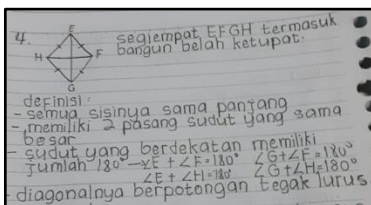 4.
E
H
F
G
segiempat EFGH termasuk
bangun belah ketupat.
definisi:
- semua sisinya sama panjang
- memiliki 2 pasang sudut yang sama
besar
- sudut yang berdekatan memiliki
jumlah 180° → ∠E + ∠F = 180° ∠G + ∠F = 180°
∠E + ∠H = 180° ∠G + ∠H = 180°
- diagonalnya berpotongan tegak lurus